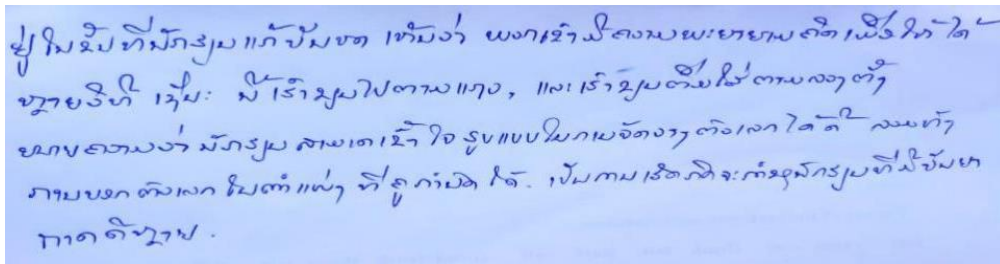 ຢູ່ໃນຂັ້ນທີ່ນັກຮຽນແກ້ບັນຫາ ເຫັນວ່າ ພວກເຂົາມີຄວາມພະຍາຍາມຄິດເພື່ອໃຫ້ໄດ້
ຫຼາຍວິທີ ເຊັ່ນ: ມີເຂົາຂຽນໄປຕາມແຖວ, ແລະ ເຂົາຂຽນຕື່ມໃສ່ຕາມລວງຕັ້ງ
ໝາຍຄວາມວ່ານັກຮຽນສາມາດເຂົ້າໃຈຮູບແບບໃນການຈັດວາງຕົວເລກໄດ້ດີ ລວມທັງ
ການບອກຕົວເລກໃນຕຳແໜ່ງທີ່ຄູກຳນົດໄດ້. ເປັນການເຮັດກິດຈະກຳຂອງນັກຮຽນທີ່ມີບັນຍາ
ກາດດີຫຼາຍ.